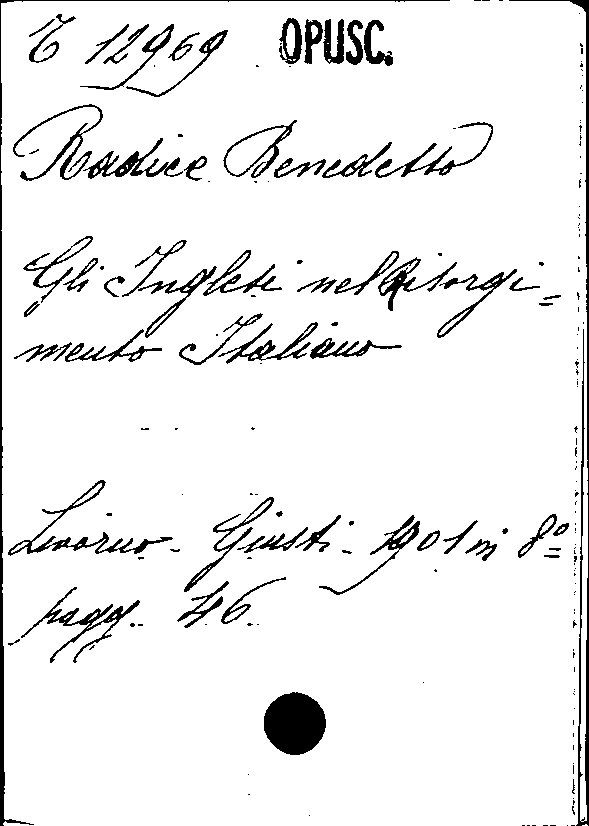 T 12969 OPUSC.
Radice Benedetto
Gli Inglesi nel Risorgi=
mento Italiano
Livorno - Giusti - 1901 in 8º
pagg. 46